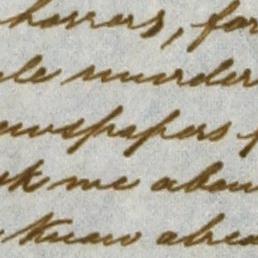 horrors, for
le murder
ewspapers f
sk me abou
know alrea